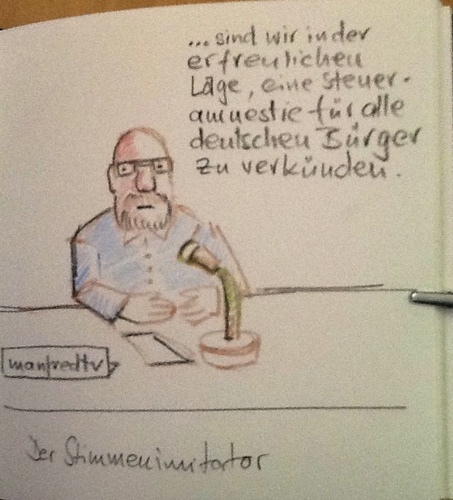 ... sind wir in der
erfreulichen
Lage, eine Steuer-
amnestie für alle
deutschen Bürger
zu verkünden.
manfredtv
Der Stimmenimitator